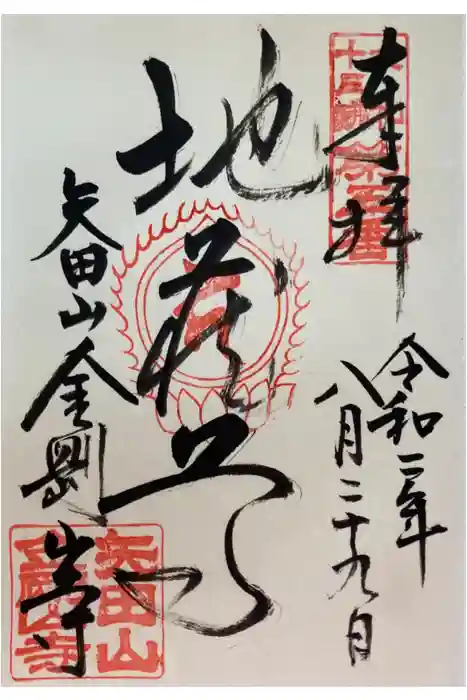 大和
十三佛
第五番
奉拝
令和二年
八月二十九日
地蔵尊
矢田山金剛山寺
矢田山
金剛山寺